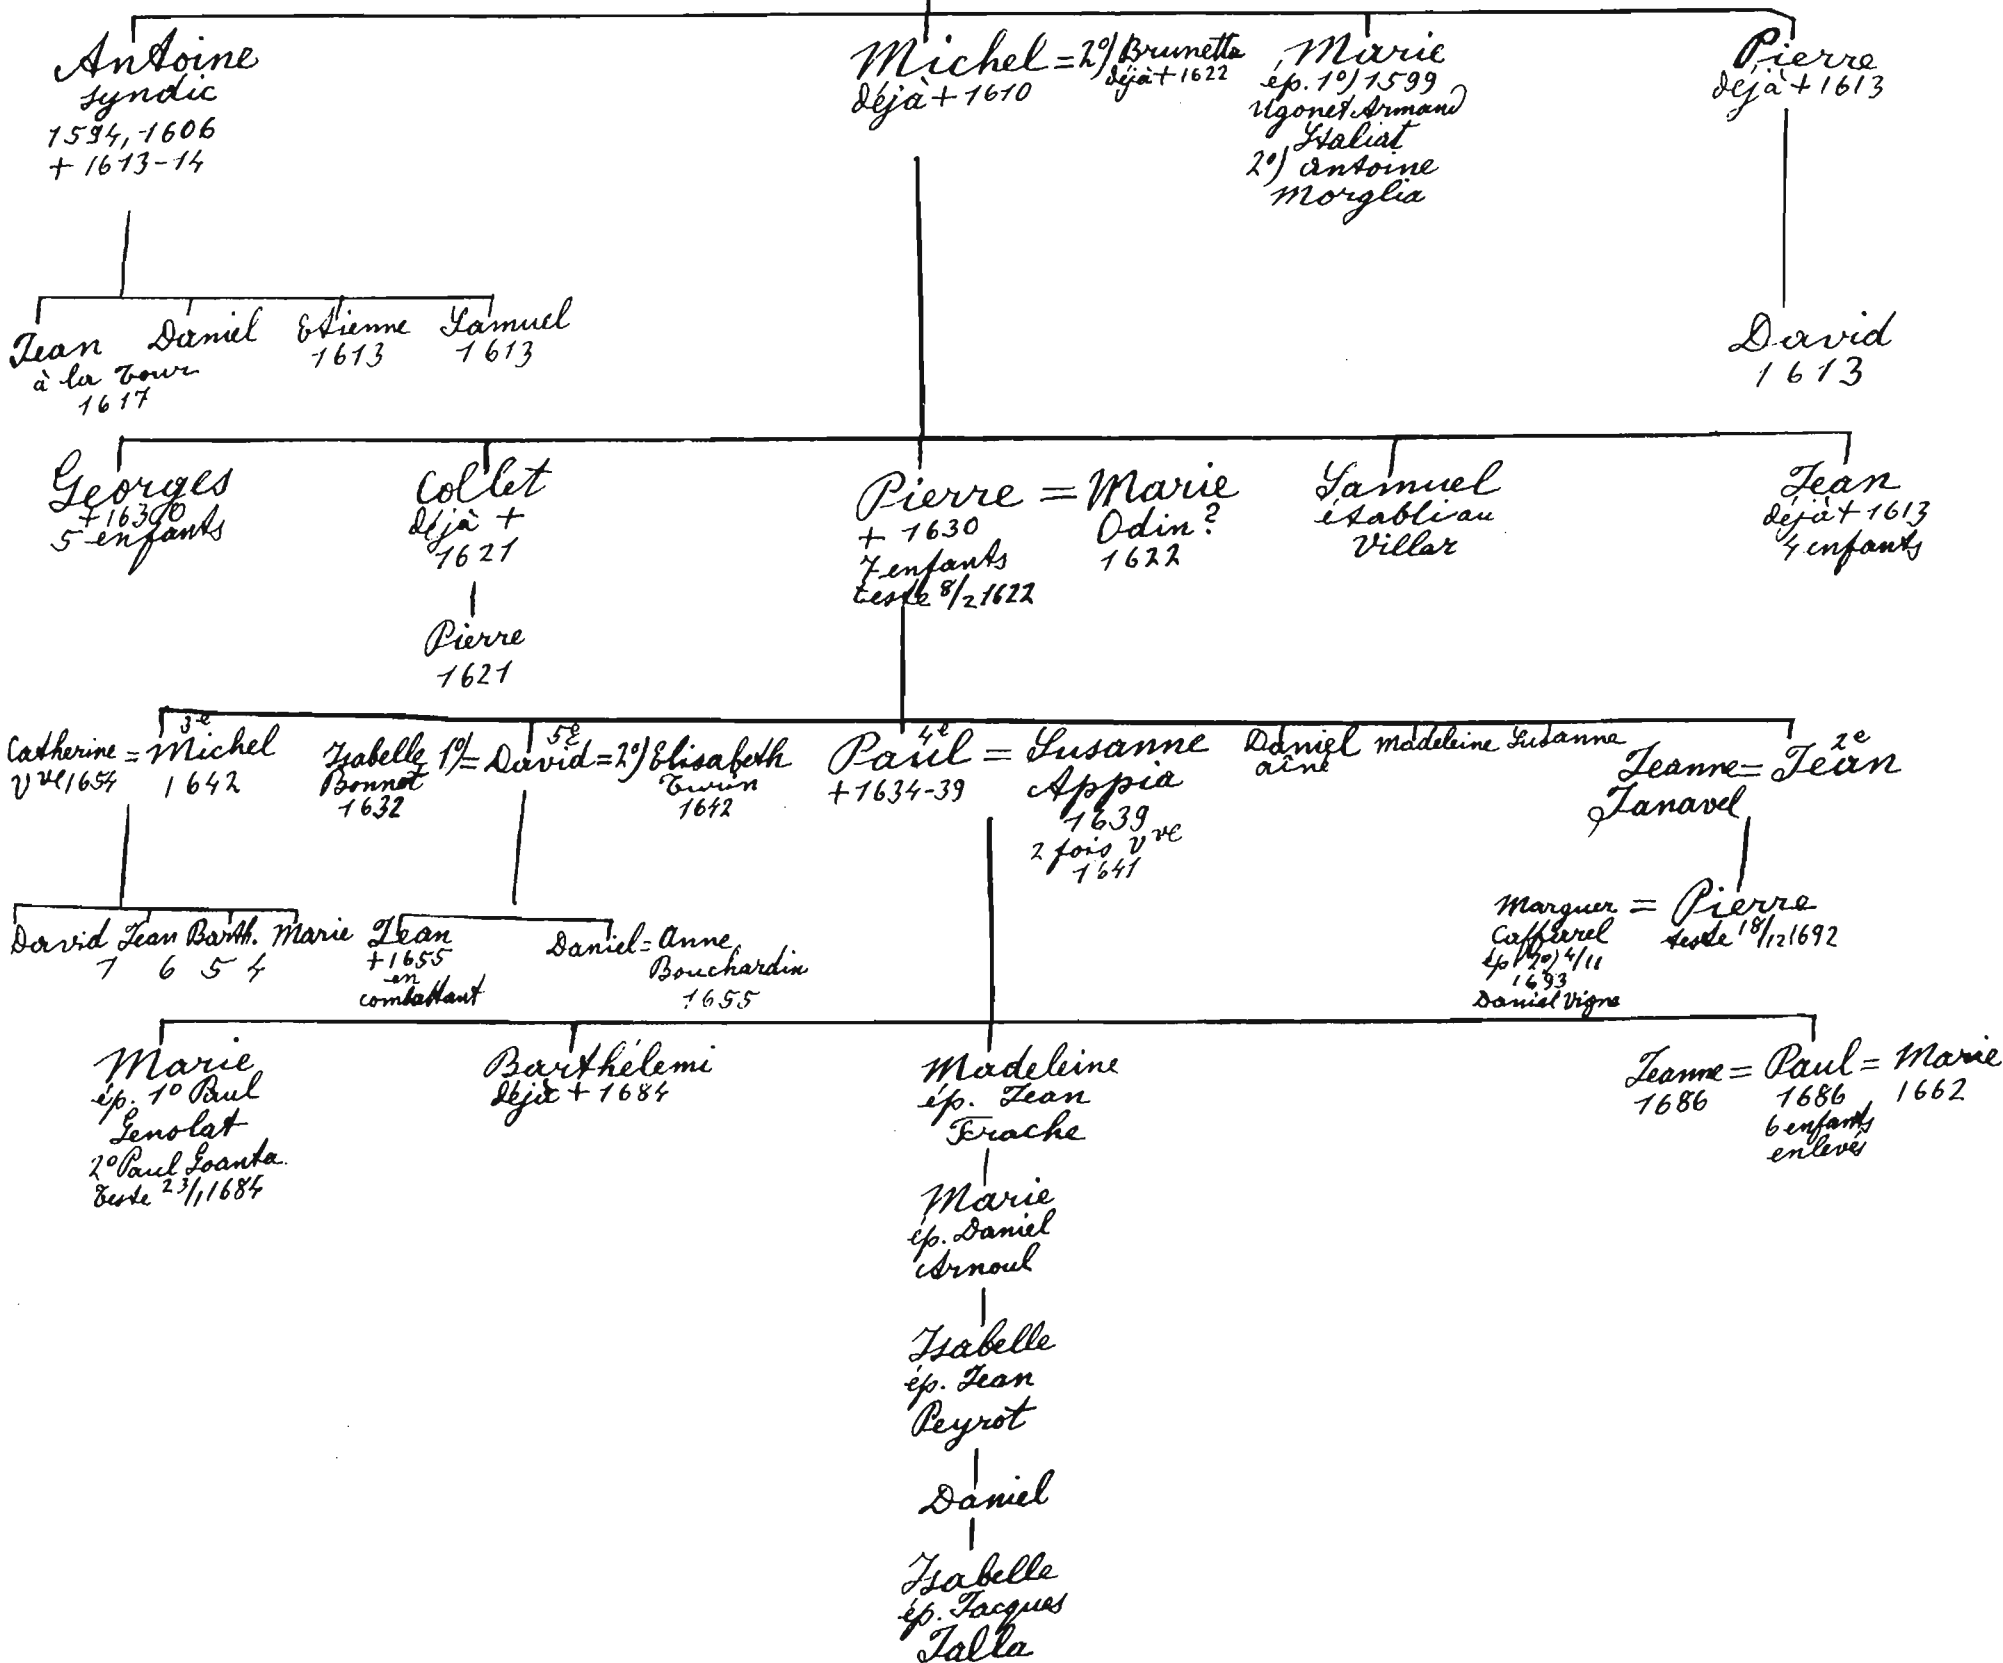 Antoine
syndic
1594, -1606
+ 1613-14
Michel = 2°) Brunetta
déjà + 1610
déjà + 1622
Marie
ép. 1°) 1599
Ugonet Armand
Staliat
2°) Antoine
Morglia
Pierre
déjà + 1613
Jean
à la Tour
1617
Daniel
Etienne
1613
Samuel
1613
David
1613
Georges
+ 1630
5 enfants
Collet
déjà +
1621
Pierre
1621
Pierre = Marie
+ 1630
7 enfants
teste 8/2 1622
Odin?
1622
Samuel
établi au
Villar
Jean
déjà + 1613
4 enfants
3e
Catherine = Michel
Vve 1654
1642
5e
Isabelle 1°) = David = 2°) Elisabeth
Bonnet
1632
Turin
1642
4e
Paul = Susanne
+ 1634-39
Appia
1639
2 fois vve
1641
Daniel
aîné
Madeleine
Susanne
2e
Jeanne = Jean
Janavel
David
7
Jean
6
Barth.
5
Marie
4
Jean
+ 1655
en
combattant
Daniel = Anne
Bouchardin
1655
Marguer = Pierre
Caffarel
ép. 2°) 4/11
1693
Daniel Vigne
teste 18/12 1692
Marie
ép. 1° Paul
Genolat
2° Paul Goanta
Teste 23/1 1684
Barthélemi
déjà + 1684
Madeleine
ép. Jean
Frache
Jeanne = Paul = Marie
1686
1686
1662
6 enfants
enlevés
Marie
ép. Daniel
Arnoul
Isabelle
ép. Jean
Peyrot
Daniel
Isabelle
ép. Jacques
Jalla